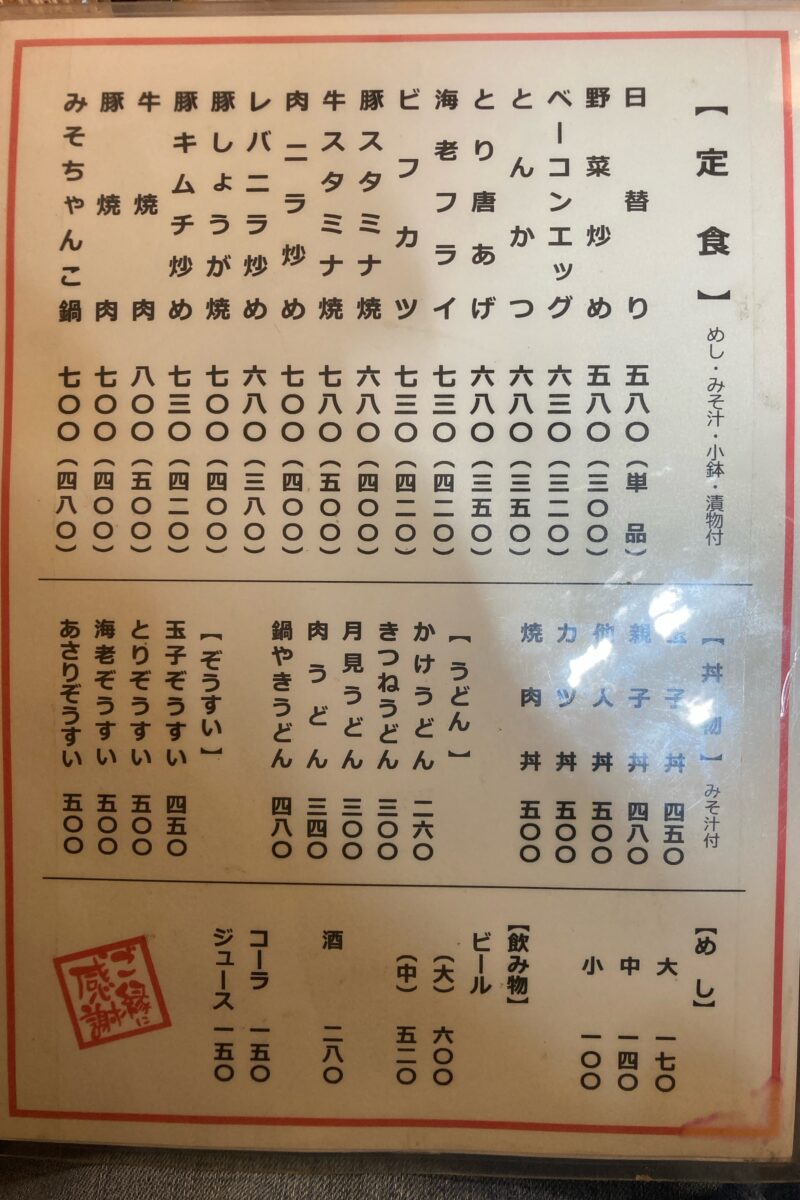 【定食】めし・みそ汁・小鉢・漬物付
日替り 五八〇（単品）
野菜炒め 五八〇（三〇〇）
ベーコンエッグ 六三〇（三二〇）
とんかつ 六八〇（三五〇）
とり唐あげ 六八〇（三五〇）
海老フライ 七三〇（四二〇）
ビフカツ 七三〇（四二〇）
豚スタミナ焼 六八〇（四〇〇）
牛スタミナ焼 七八〇（五〇〇）
肉ニラ炒め 七〇〇（四〇〇）
レバニラ炒め 六八〇（三八〇）
豚しょうが焼 七〇〇（四〇〇）
豚キムチ炒め 七三〇（四二〇）
牛焼肉 八〇〇（五〇〇）
豚焼肉 七〇〇（四〇〇）
みそちゃんこ鍋 七〇〇（四八〇）
【丼物】みそ汁付
玉子丼 四五〇
親子丼 四八〇
他人丼 五〇〇
カツ丼 五〇〇
焼肉丼 五〇〇
【うどん】
かけうどん 二六〇
きつねうどん 三〇〇
月見うどん 三〇〇
肉うどん 三四〇
鍋やきうどん 四八〇
【ぞうすい】
玉子ぞうすい 四五〇
とりぞうすい 五〇〇
海老ぞうすい 五〇〇
あさりぞうすい 五〇〇
【めし】
大 一七〇
中 一四〇
小 一〇〇
【飲み物】
ビール
（大） 六〇〇
（中） 五二〇
酒 二八〇
コーラ 一五〇
ジュース 一五〇
ご縁に
感謝